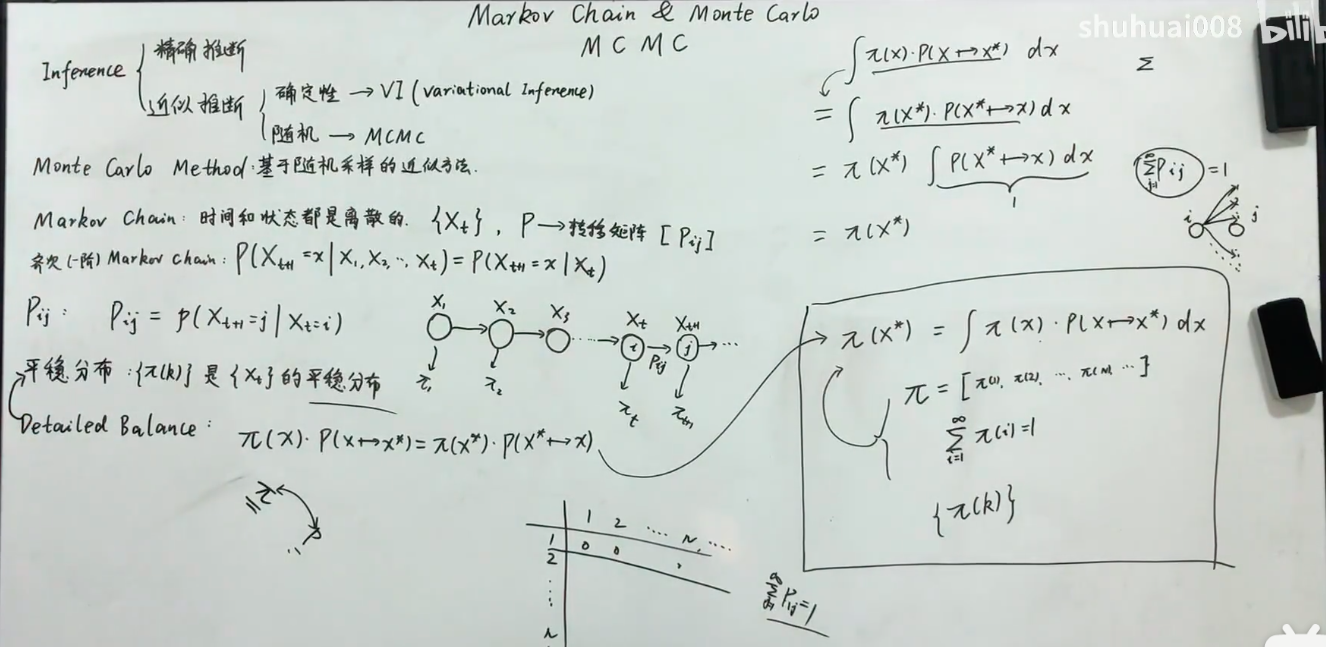 Markov Chain & Monte Carlo
MCMC
shuhuai008 bilib
Inference { 精确推断
近似推断 { 确定性 → VI (Variational Inference)
随机 → MCMC
Monte Carlo Method: 基于随机采样的近似方法.
Markov Chain: 时间和状态都是离散的. {X_t}, P → 转移矩阵 [P_ij]
齐次(一阶) Markov Chain: P(X_{t+1}=x | X_1, X_2, ..., X_t) = P(X_{t+1}=x | X_t)
P_ij: P_ij = p(X_{t+1}=j | X_t=i)
X_1 → X_2 → X_3 ... → X_t X_{t+1} → ...
i P_ij j
π_1 π_2 π_t π_{t+1}
平稳分布: {π(k)} 是 {X_t} 的平稳分布
Detailed Balance: π(x)·P(x↦x*) = π(x*)·P(x*↦x)
1 2 ... n. ...
1 0 0
2
⋮
n
∑ P_ij = 1
∫ π(x)·P(x↦x*) dx
Σ
= ∫ π(x*)·P(x*↦x) dx
= π(x*) ∫ P(x*↦x) dx
1
= π(x*)
∑_{j=1}^{∞} P_ij = 1
i j
π(x*) = ∫ π(x)·P(x↦x*) dx
π = [π(1), π(2), ..., π(n), ...]
∑_{i=1}^{∞} π(i) = 1
{π(k)}